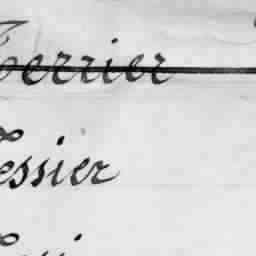 Terrier
Tessier